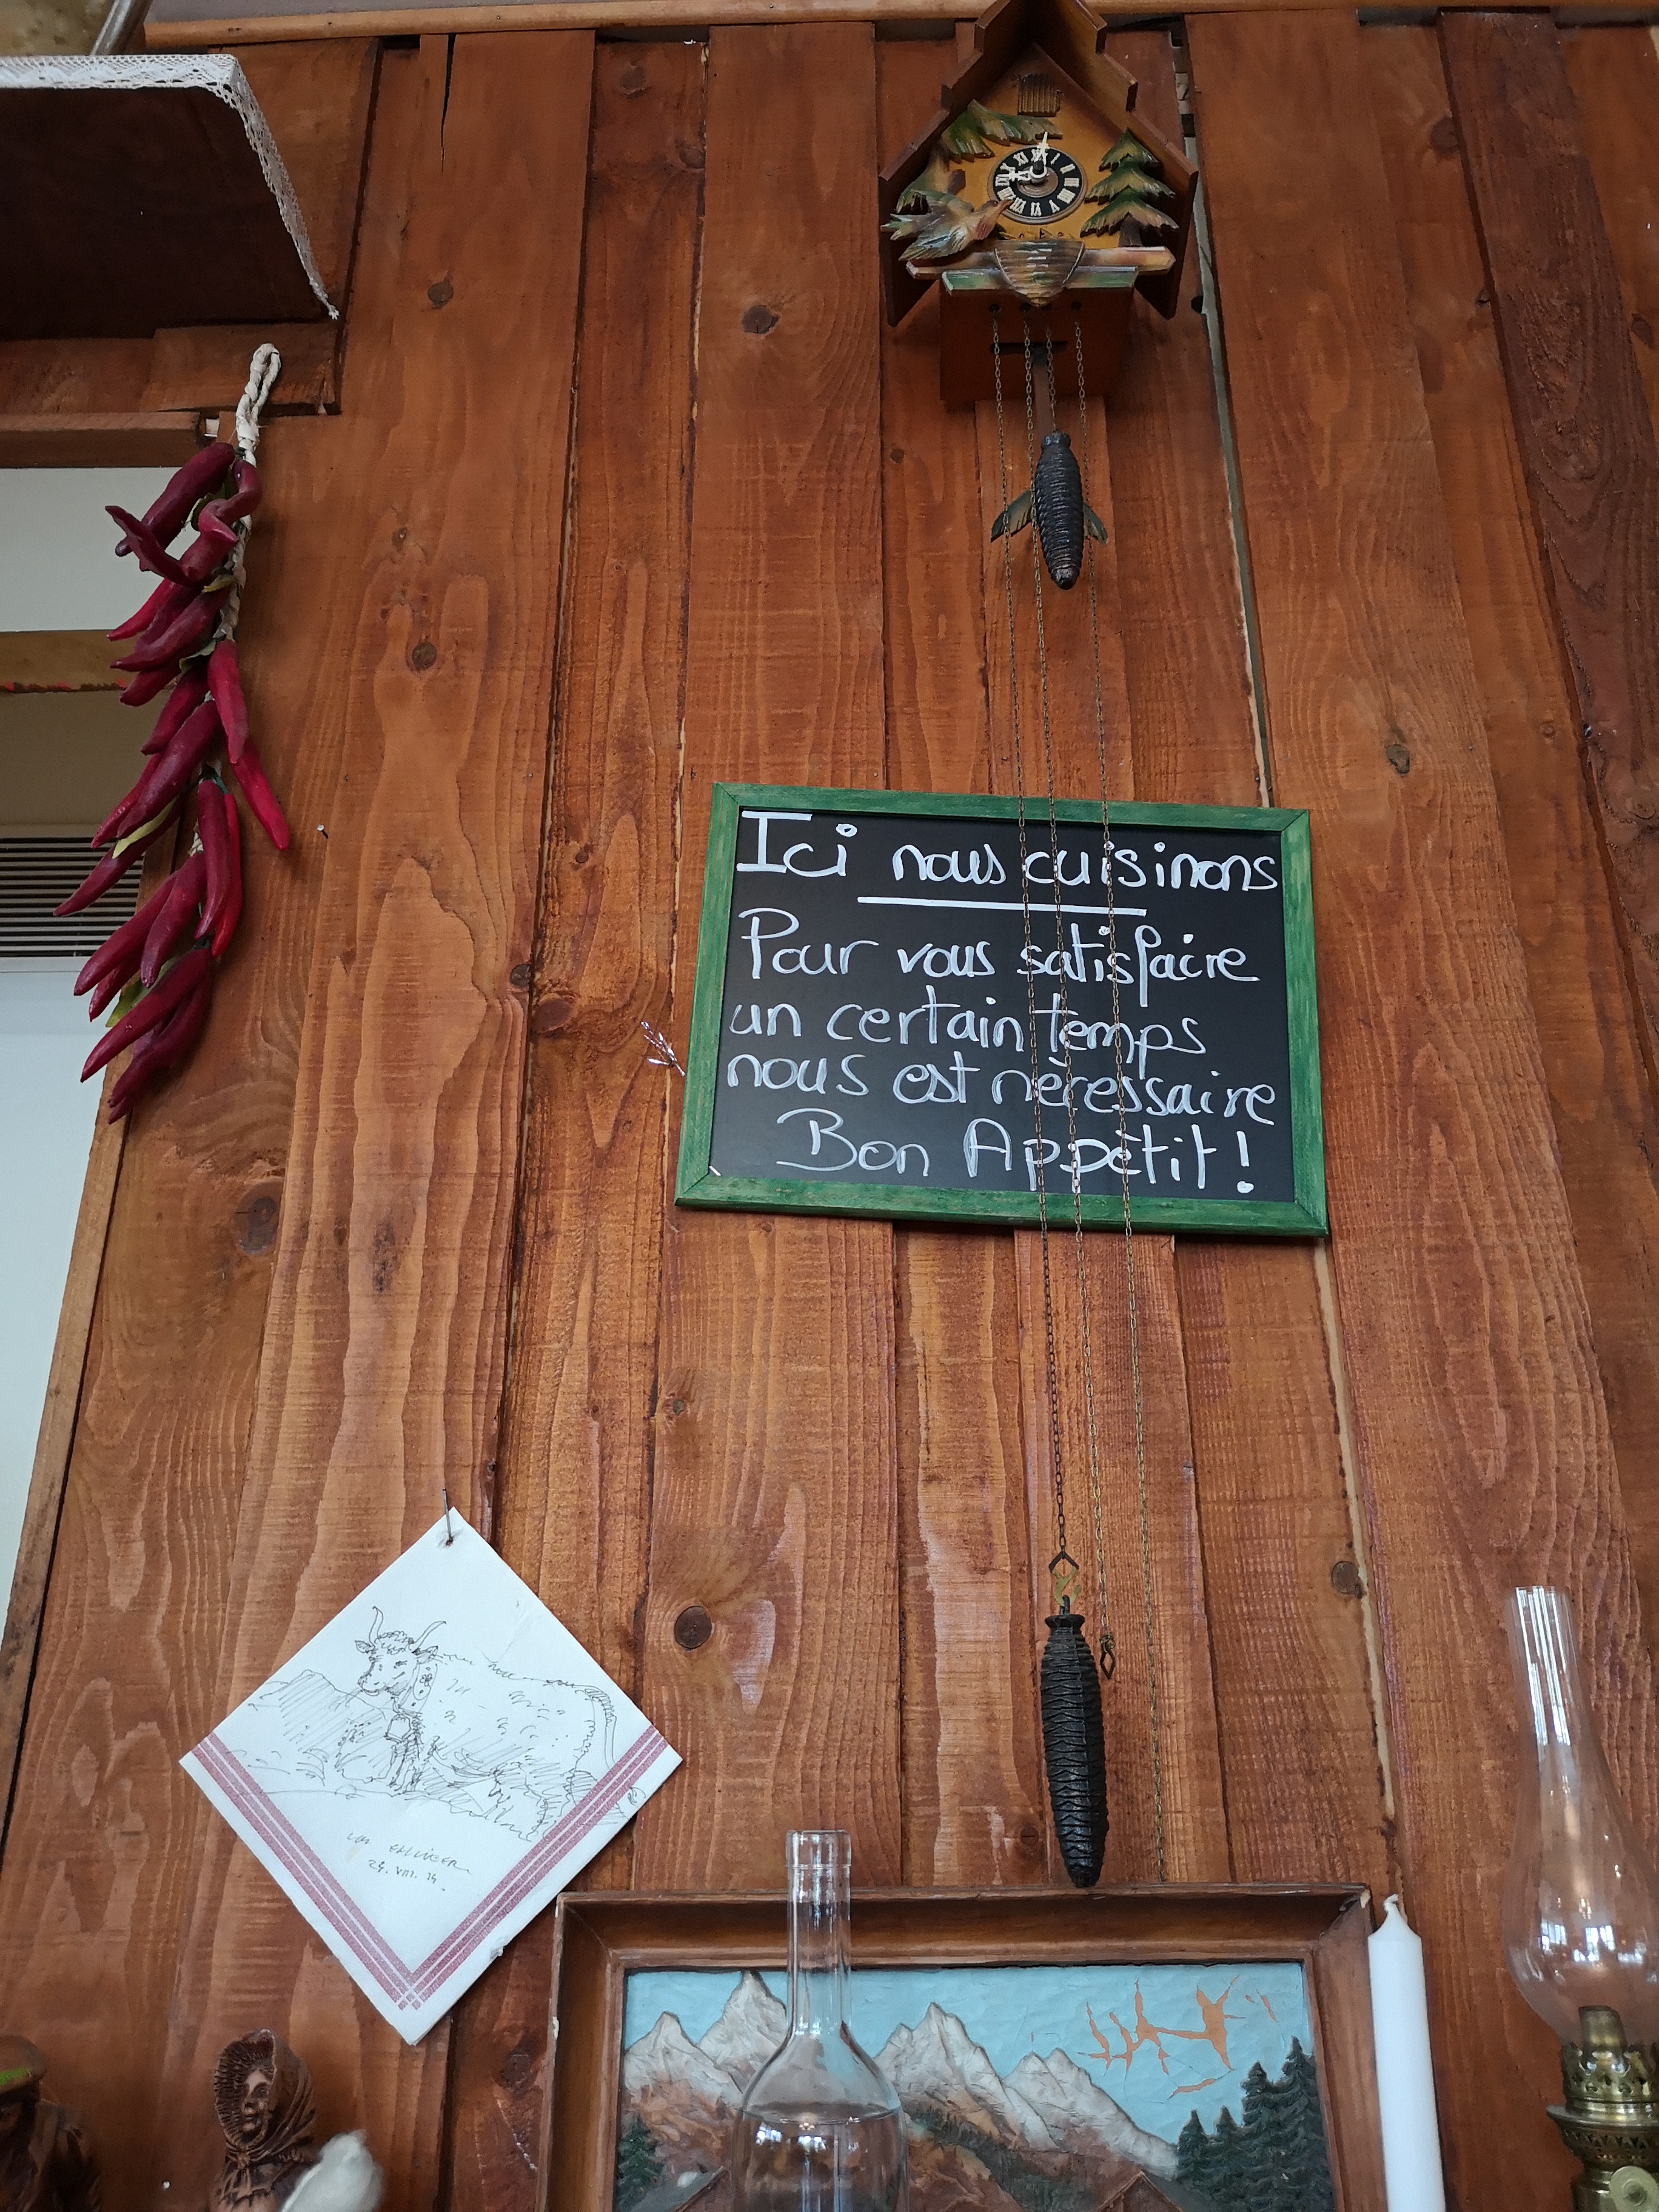 Ici nous cuisinons
Pour vous satisfaire
un certain temps
nous est nécessaire
Bon Appétit!
24. VIII. 14